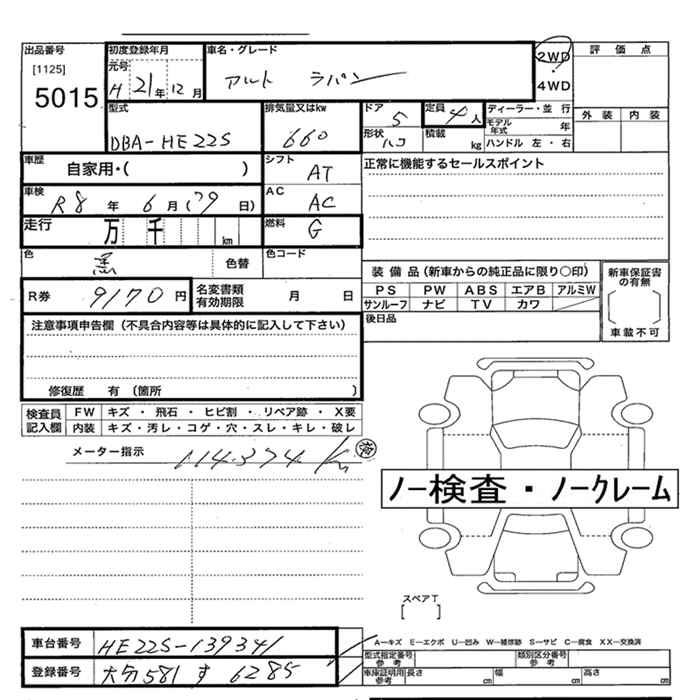 出品番号 初度登録年月 車名・グレード 2WD 評価点
[1125] 元号 H 21年 12月 アルト ラパン 4WD
5015 型式 排気量又はkw ドア 定員 ディーラー・並行 外装 内装
DBA-HE22S 660 5 4人 モデル年式 年
形状 ハコ 積載 kg ハンドル 左・右
車歴 自家用・( ) シフト AT 正常に機能するセールスポイント
車検 R8年 6月 日) AC AC
走行 万 千 km 燃料 G
色 黒 色替 色コード
装備品(新車からの純正品に限り○印) 新車保証書の有無
R券 9170円 名変書類有効期限 月 日 PS PW ABS エアB アルミW
サンルーフ ナビ TV カワ 車載不可
注意事項申告欄(不具合内容等は具体的に記入して下さい) 後日品
修復歴 有(箇所 )
検査員記入欄 FW キズ・飛石・ヒビ割・リペア跡・X要
内装 キズ・汚レ・コゲ・穴・スレ・キレ・破レ
メーター指示 114,374 km
ノー検査・ノークレーム
スペアT
[ ]
車台番号 HE22S-139341 A-キズ E-エクボ U-凹み W-補修跡 S-サビ C-腐食 XX-交換済
型式指定番号参考 類別区分番号参考
登録番号 大分 581 す 6285 車庫証明用参考 長さ cm 幅 cm 高さ cm